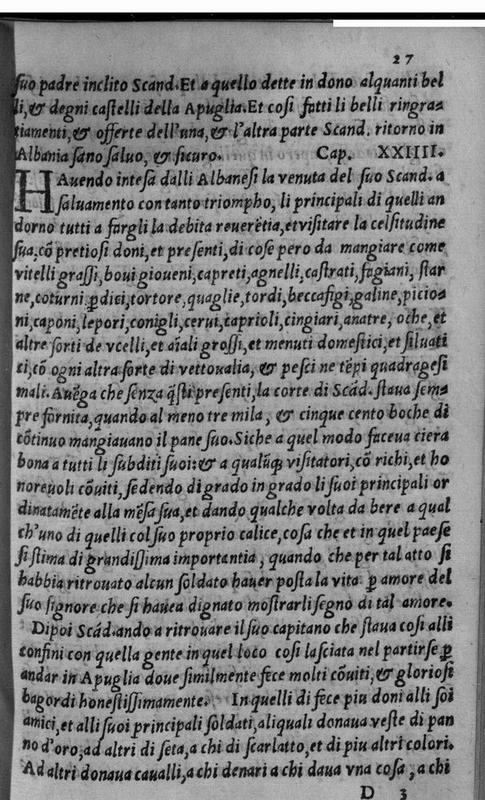 27
ſuo padre inclito Scand.Et a quello dette in dono alquanti bel
li,& degni caſtelli della Apuglia.Et coſi fatti li belli ringra=
tiamenti,& offerte dell'una,& l'altra parte Scand. ritorno in
Albania ſano ſaluo, & ſicuro. Cap. XXIIII.
HAuendo inteſa dalli Albaneſi la venuta del ſuo Scand. a
ſaluamento con tanto triompho, li principali di quelli an
dorno tutti a fargli la debita reuerẽtia,et viſitare la celſitudine
ſua,cõ pretioſi doni,et preſenti,di coſe pero da mangiare come
vitelli graſſi,boui gioueni,capreti,agnelli,caſtrati,fagiani, ſtar
ne,coturni,ꝑdici,tortore,quaglie,tordi,beccafigi,galine,picio=
ni,caponi,lepori,conigli,cerui,caprioli,cingiari,anatre, oche,et
altre ſorti de vcelli,et aĩali groſſi,et menuti domeſtici,et ſiluati
ci,cõ ogni altra ſorte di vettoualia, & peſci ne tẽpi quadrageſi
mali.Auẽga che ſenza q̃ſti preſenti,la corte di Scãd.ſtaua ſem=
pre fornita,quando al meno tre mila, & cinque cento boche di
cõtinuo mangiauano il pane ſuo.Siche a quel modo faceua ciera
bona a tutti li ſubditi ſuoi:& a qualũq; viſitatori,cõ richi,et ho
noreuoli cõuiti,ſedendo di grado in grado li ſuoi principali or
dinatamẽte alla mẽſa ſua,et dando qualche volta da bere a qual
ch'uno di quelli col ſuo proprio calice,coſa che et in quel paeſe
ſi ſtima di grandiſſima importantia, quando che per tal atto ſi
habbia ritrouato alcun ſoldato hauer poſta la vita ꝑ amore del
ſuo ſignore che ſi hauea dignato moſtrarli ſegno di tal amore.
Dipoi Scãd.ando a ritrouare il ſuo capitano che ſtaua coſi alli
confini con quella gente in quel loco coſi laſciata nel partirſe ꝑ
andar in Apuglia doue ſimilmente fece molti cõuiti,& glorioſi
bagordi honeſtiſſimamente. In quelli di fece piu doni alli ſoi
amici,et alli ſuoi principali ſoldati,aliquali donaua veſte di pan
no d'oro,ad altri di ſeta,a chi di ſcarlatto,et di piu altri colori.
Ad altri donaua caualli,a chi denari a chi daua vna coſa, a chi
D 3